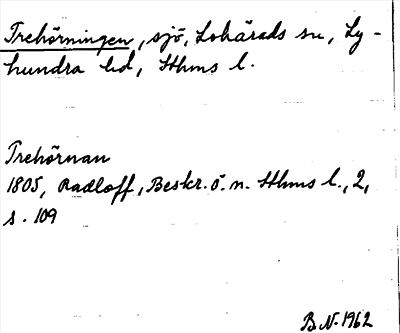 Trehörningen, sjö, Lohärads sn, Ly-
hundra hd, Sthms l.
Trehörnan
1805, Radloff, Beskr. ö. n. Sthms l., 2,
s. 109
B.N. 1962